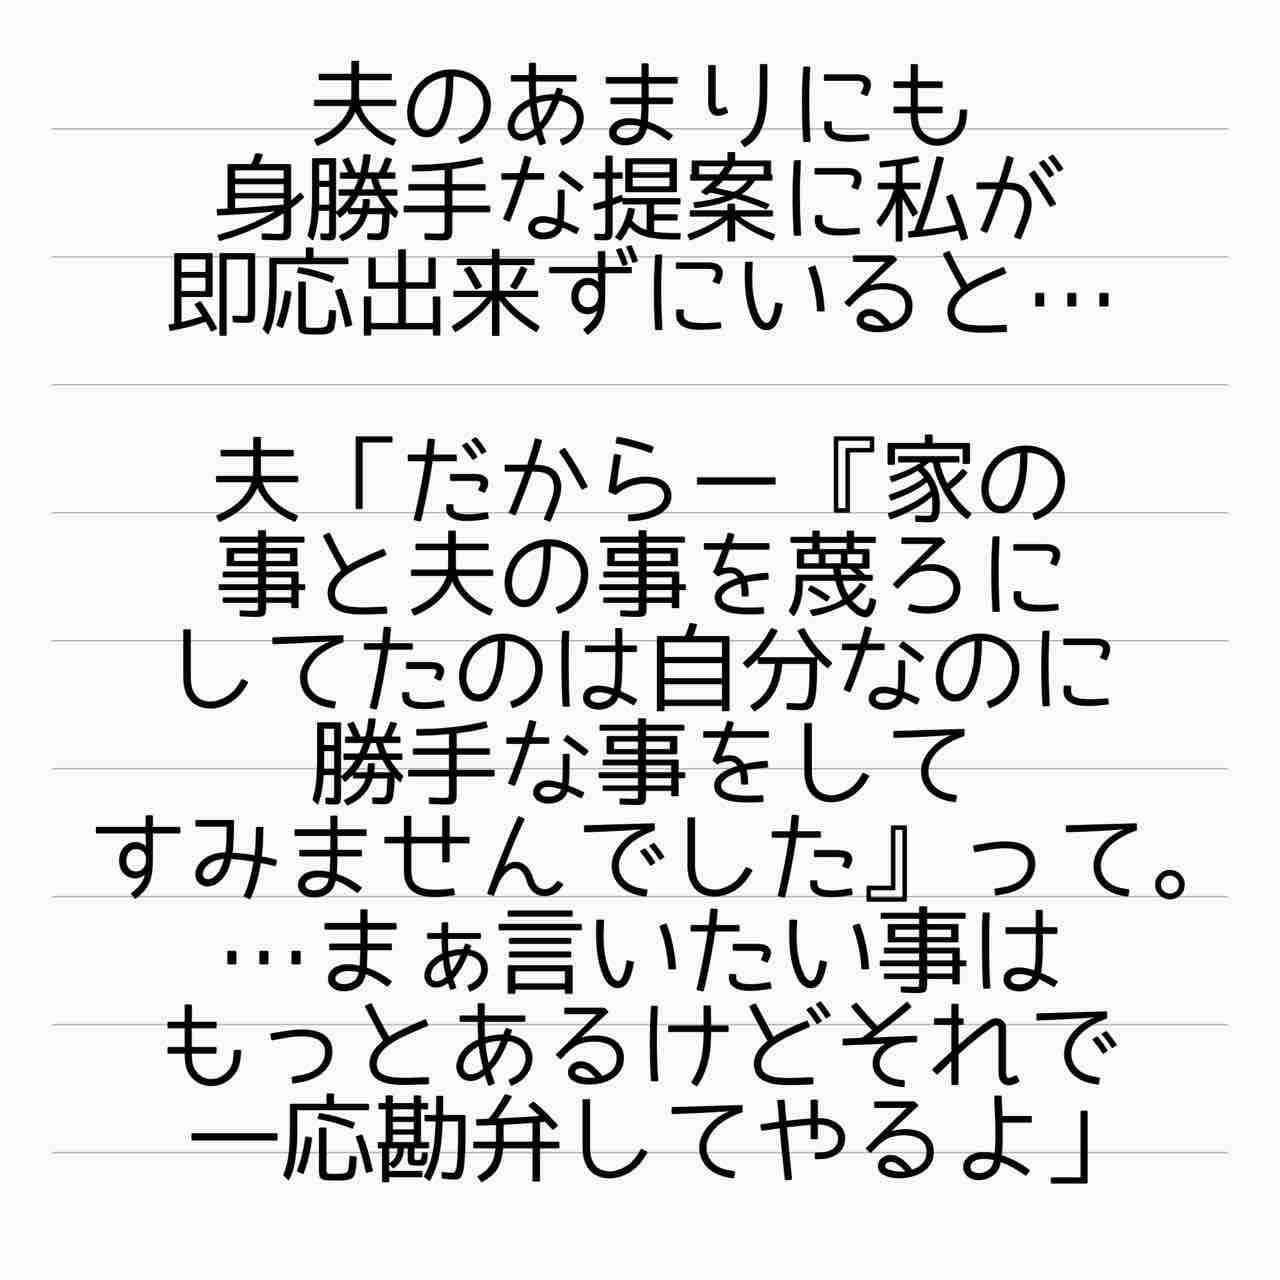 夫のあまりにも
身勝手な提案に私が
即応出来ずにいると…
夫「だからー『家の
事と夫の事を蔑ろに
してたのは自分なのに
勝手な事をして
すみませんでした』って。
…まぁ言いたい事は
もっとあるけどそれで
一応勘弁してやるよ」